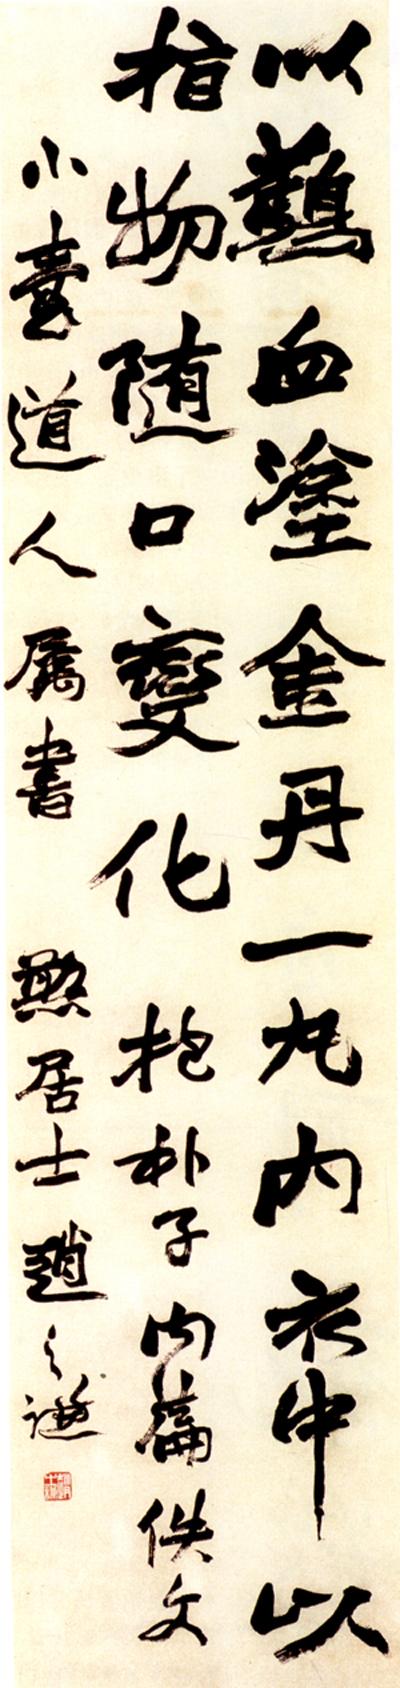 以鷄血塗金丹一丸內衣中以
指物随口變化 抱朴子內篇佚文
小臺道人属書 憨居士趙之謙